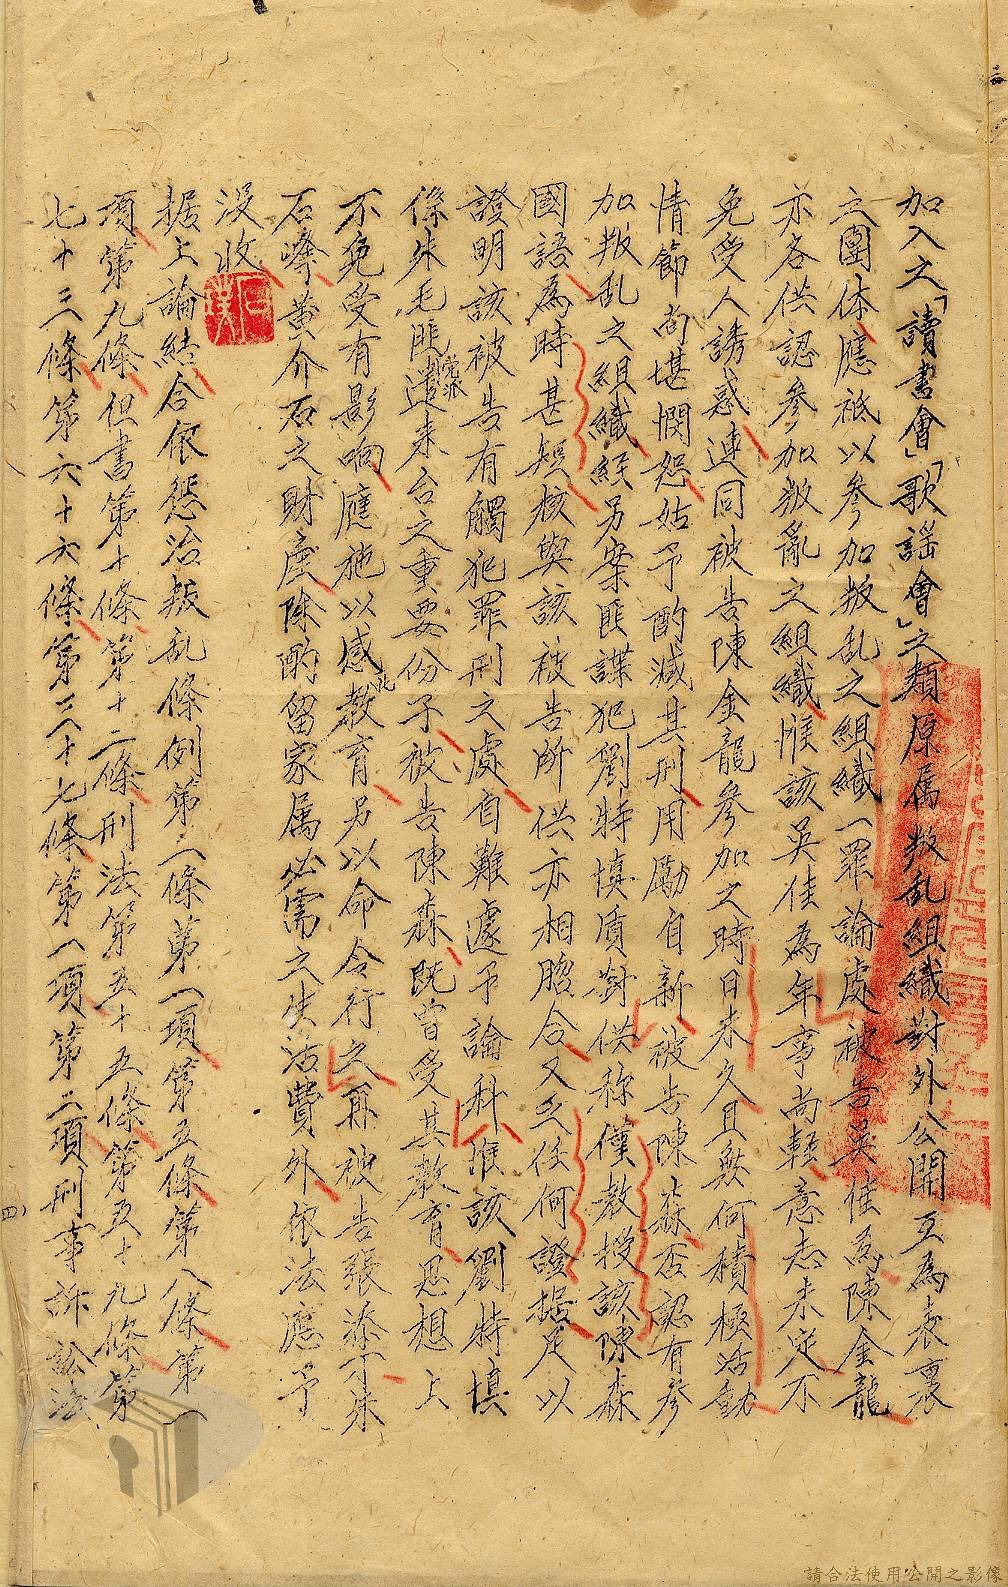 加入之「讀書會」「歌謠會」之類原属叛乱組織對外公開互為表裏
之團体應祗以參加叛乱之組織一罪論處被告吳佳為陳金龍
亦各供認參加叛亂之組織惟該吳佳為年事尚輕意志未定不
免受人誘惑連同被告陳金龍參加之時日未久且無何積極活動
情節尚堪憫恕姑予酌減其刑用勵自新被告陳森否認有參
加叛乱之組織經另案匪諜犯劉特慎質對供称僅教授該陳森
國語為時甚短核與該被告所供亦相脗合又乏任何證据足以
證明該被告有觸犯罪刑之處自難遽予論科惟該劉特慎
係朱毛匪党派遣来台之重要份子被告陳森既曾受其教育思想上
不免受有影响應施以感化教育另以命令行之再被告張添丁朱
石峰黄介石之財產除酌留家属必需之生活費外依法應予
没收
据上論結合依懲治叛乱條例第二條第一項第五條第八條第一
項第九條但書第十條第十二條刑法第五十五條第五十九條第
七十三條第六十六條第三十七條第一項第二項刑事訴訟法
四
請合法使用公開之影像